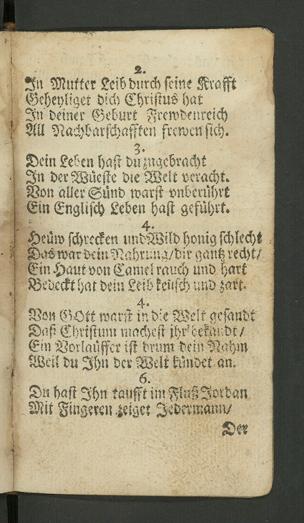 2.
In Mutter Leib durch seine Krafft
Geheyliget dich Christus hat
In deiner Geburt Frewdenreich
All Nachbarschafften frewen sich.
3.
Dein Leben hast du zugebracht
In der Wüeste die Welt veracht.
Von aller Sünd warst vnberührt
Ein Englisch Leben hast geführt.
4.
Heüwschrecken und Wild honig schlecht
Das war dein Nahrung/ dir gantz recht/
Ein Haut von Camel rauch und hart
Bedeckt hat dein Leib keüsch und zart.
4.
Von GOtt warst in die Welt gesandt
Daß Christum machest jhr bekandt/
Ein Vorlaüffer ist drum dein Nahm
Weil du Ihn der Welt kündet an.
6.
Du hast Ihn taufft im Fluß Jordan
Mit Fingeren zeiget Jedermann/
Der